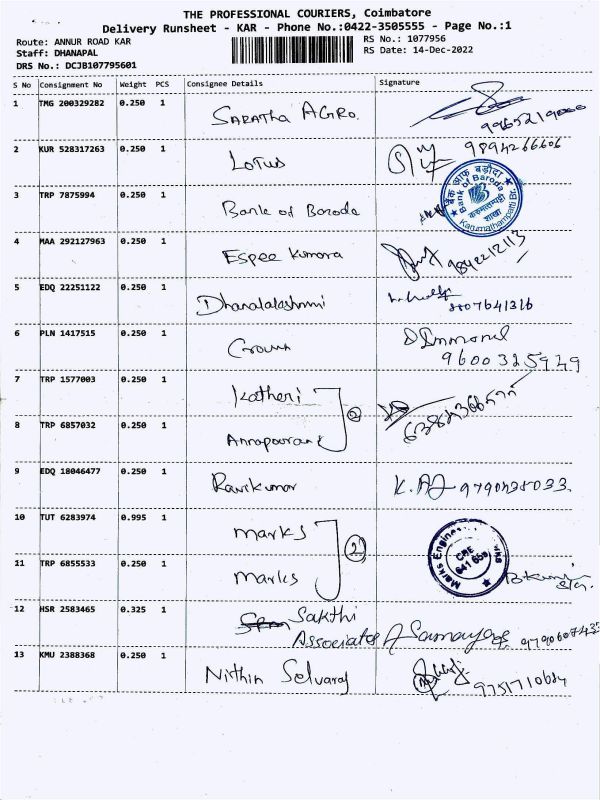 THE PROFESSIONAL COURIERS, Coimbatore
Delivery Runsheet - KAR - Phone No.:0422-3505555 - Page No.:1
Route: ANNUR ROAD KAR RS No.: 1077956
Staff: DHANAPAL RS Date: 14-Dec-2022
DRS No.: DCJB107795601
S No Consignment No Weight PCS Consignee Details Signature
1 TMG 200329282 0.250 1 Saratha AGRO.
2 KUR 528317263 0.250 1 Lotus 9894266606
3 TRP 7875994 0.250 1 Bank of Baroda
बैंक ऑफ़ बड़ौदा
Bank of Baroda
शाखा
Karumathampatti Br.
4 MAA 292127963 0.250 1 Espee Kumara 9842212113
5 EDQ 22251122 0.250 1 Dhanalakshmi 8807641316
6 PLN 1417515 0.250 1 Crown
9600325949
7 TRP 1577003 0.250 1 Katheri 2
8 TRP 6857032 0.250 1 Annapoorani
9 EDQ 18046477 0.250 1 Ravikumar
10 TUT 6283974 0.995 1 Marks 2
11 TRP 6855533 0.250 1 Marks
Marks Engineering Works
CBE
641 659
12 HSR 2583465 0.325 1 Sakthi
Associates
13 KMU 2388368 0.250 1 Nithin Selvaraj